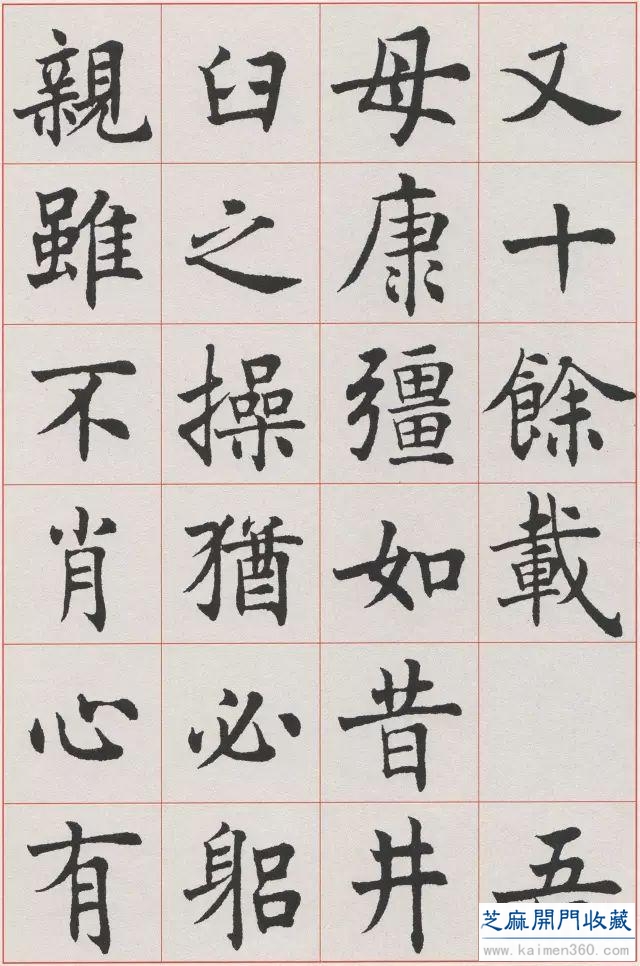 又十餘載　吾
母康彊如昔井
臼之操猶必躳
親雖不肖心有
芝麻開門收藏
www.kaimen360.com